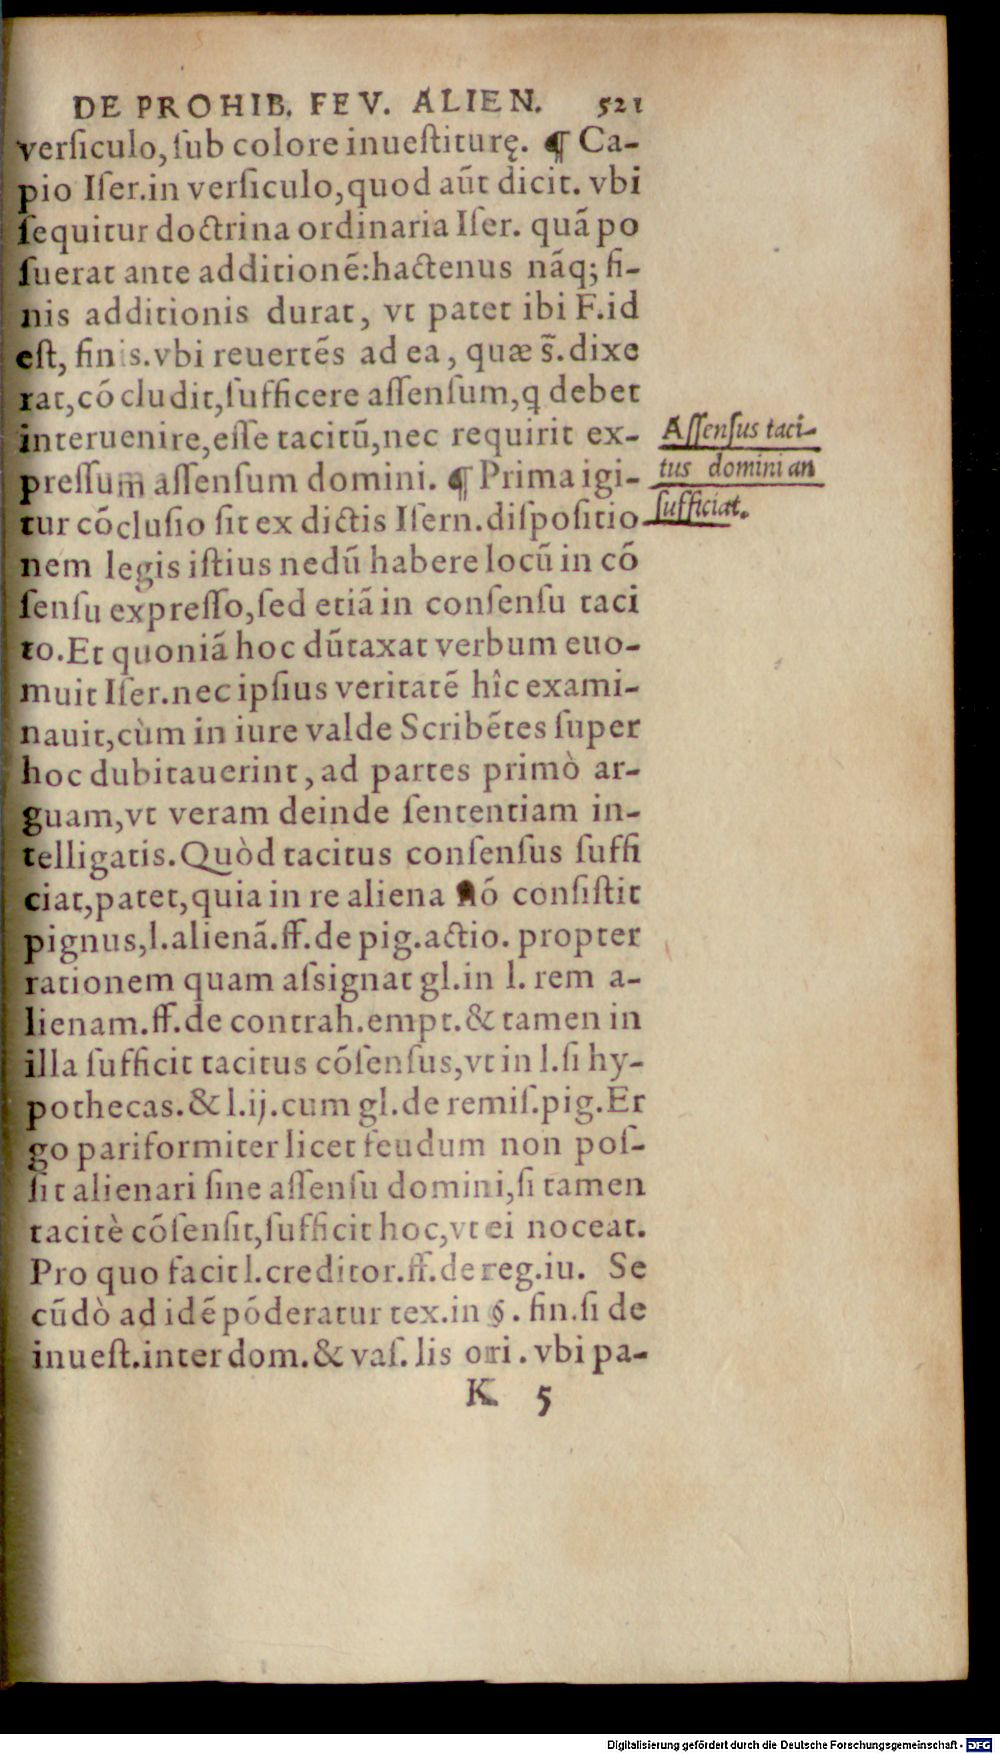 DE PROHIB. FEV. ALIEN. 521
verſiculo, ſub colore inueſtiturę. ¶ Ca-
pio Iſer.in verſiculo,quod aũt dicit. vbi
ſequitur doctrina ordinaria Iſer. quã po
ſuerat ante additionẽ:hactenus nãq; fi-
nis additionis durat, vt patet ibi F.id
eſt, finis.vbi reuertẽs ad ea, quæ s̃.dixe
rat,cõcludit,ſufficere aſſenſum,q debet
interuenire,eſſe tacitũ,nec requirit ex-
preſſum aſſenſum domini. ¶ Prima igi-
tur cõcluſio ſit ex dictis Iſern.diſpoſitio
nem legis iſtius nedũ habere locũ in cõ
ſenſu expreſſo,ſed etiã in conſenſu taci
to.Et quoniã hoc dũtaxat verbum euo-
muit Iſer.nec ipſius veritatẽ hîc exami-
nauit,cùm in iure valde Scribẽtes ſuper
hoc dubitauerint, ad partes primò ar-
guam,vt veram deinde ſententiam in-
telligatis.Quòd tacitus conſenſus ſuffi
ciat,patet,quia in re aliena nõ conſiſtit
pignus,l.alienã.ff.de pig.actio. propter
rationem quam aſsignat gl.in l. rem a-
lienam.ff.de contrah.empt.& tamen in
illa ſufficit tacitus cõſenſus,vt in l.ſi hy-
pothecas.& l.ij.cum gl.de remiſ.pig.Er
go pariformiter licet feudum non poſ-
ſit alienari ſine aſſenſu domini,ſi tamen
tacitè cõſenſit,ſufficit hoc,vt ei noceat.
Pro quo facit l.creditor.ff.de reg.iu. Se
cũdò ad idẽ põderatur tex.in §. fin.ſi de
inueſt.inter dom.& vaſ. lis ori. vbi pa-
K 5
Aſſenſus taci-
tus domini an
ſufficiat.
Digitalisierung gefördert durch die Deutsche Forschungsgemeinschaft - DFG